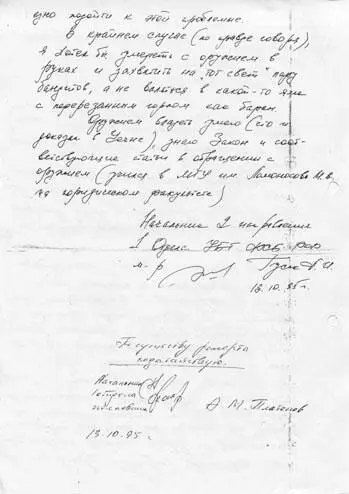 одно подойти к этой проблеме.
В крайнем случае (по правде говоря),
я хотел бы умереть с оружием в
руках и захватить на "тот свет" пару
бандитов, а не валяться в какой-то яме
с перерезанным горлом как баран.
Оружием владеть умею (что и
доказал в Чечне), знаю Закон и соот-
ветствующие статьи в обращении с
оружием (учился в МГУ им Ломоносова М.В.
на юридическом факультете)
Начальник 2 направления
1 Отдела УБТ ФСБ РФ
м-р
13.10.95 г.
По существу рапорта
ходатайствую.
Начальник
1 отдела
полковник
А. М. Платонов
13.10.95 г.